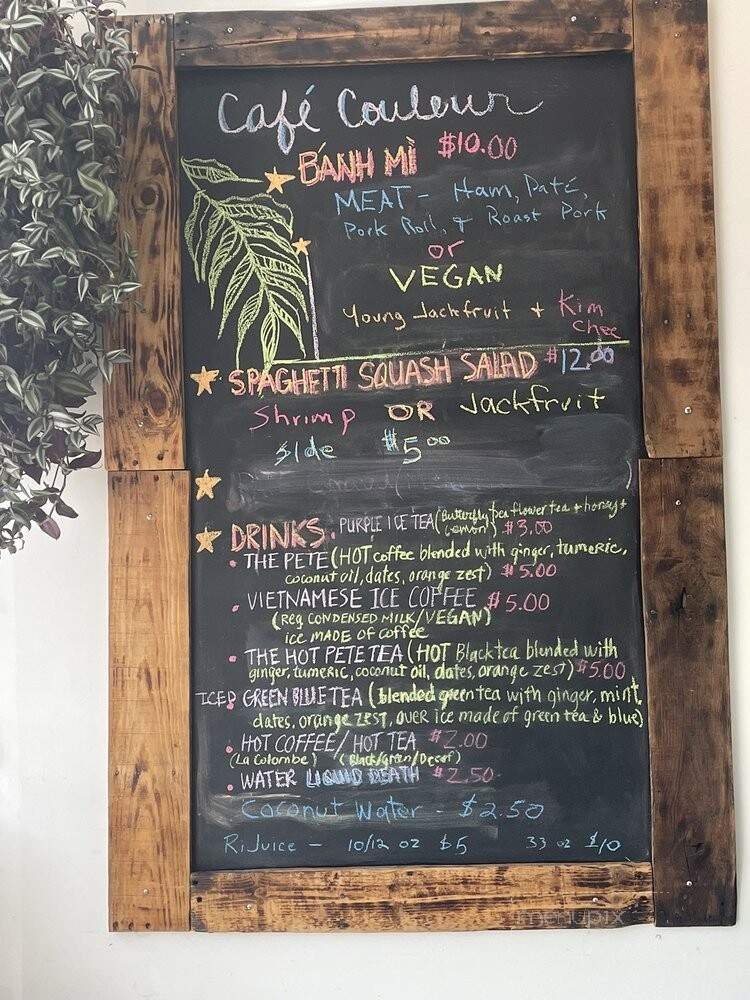 Café Couleur
BÁNH MÌ $10.00
MEAT - Ham, Paté,
Pork Roll, & Roast Pork
or
VEGAN
Young Jackfruit + Kim
Chee
SPAGHETTI SQUASH SALAD $12.00
Shrimp OR Jackfruit
side $5.00
DRINKS. PURPLE ICE TEA (Butterfly pea flower tea + honey +
lemon) $3.00
• THE PETE (HOT coffee blended with ginger, tumeric,
coconut oil, dates, orange zest) $5.00
• VIETNAMESE ICE COFFEE $5.00
(Reg CONDENSED MILK/VEGAN)
ice MADE OF coffee
• THE HOT PETE TEA (HOT Black tea blended with
ginger, tumeric, coconut oil, dates, orange zest) $5.00
ICED GREEN BLUE TEA (blended green tea with ginger, mint,
dates, orange ZEST, OVER ice made of green tea & blue)
• HOT COFFEE/HOT TEA $2.00
(La Colombe) (Black/Green/Decaf)
• WATER LIQUID DEATH $2.50
Coconut Water - $2.50
RiJuice - 10/12 oz $5 33 oz $10
menupix